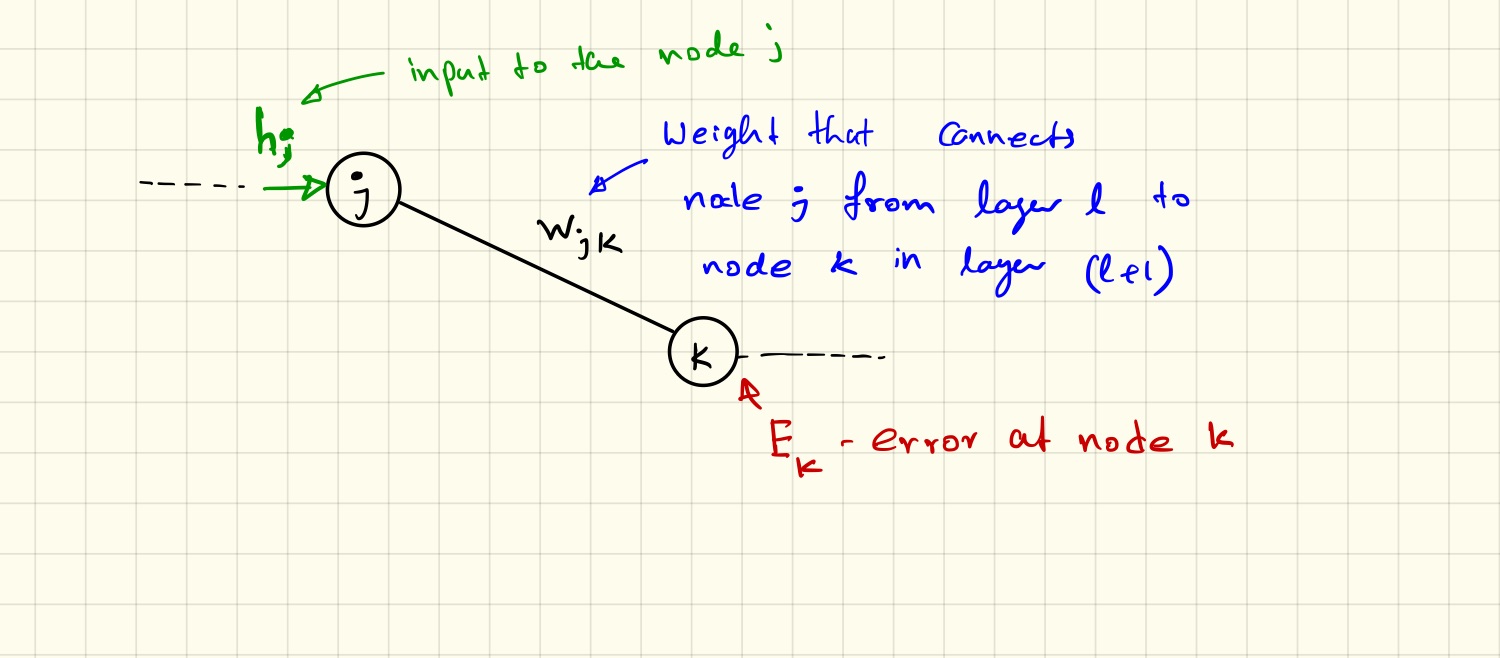 input to the node j
hj
Weight that connects
node j from layer l to
node k in layer (l+1)
j
wjk
k
Ek - error at node k